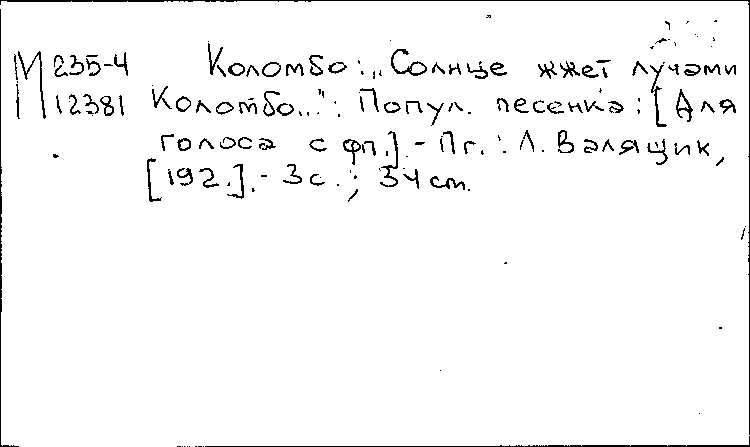 М 235-4 Коломбо: „Солнце жжет лучами
12381 Коломбо..." : Попул. песенка : [Для
голоса с фп.]. - Пг. : Л. Валящик,
[192.]. - 3 с. ; 34 см.